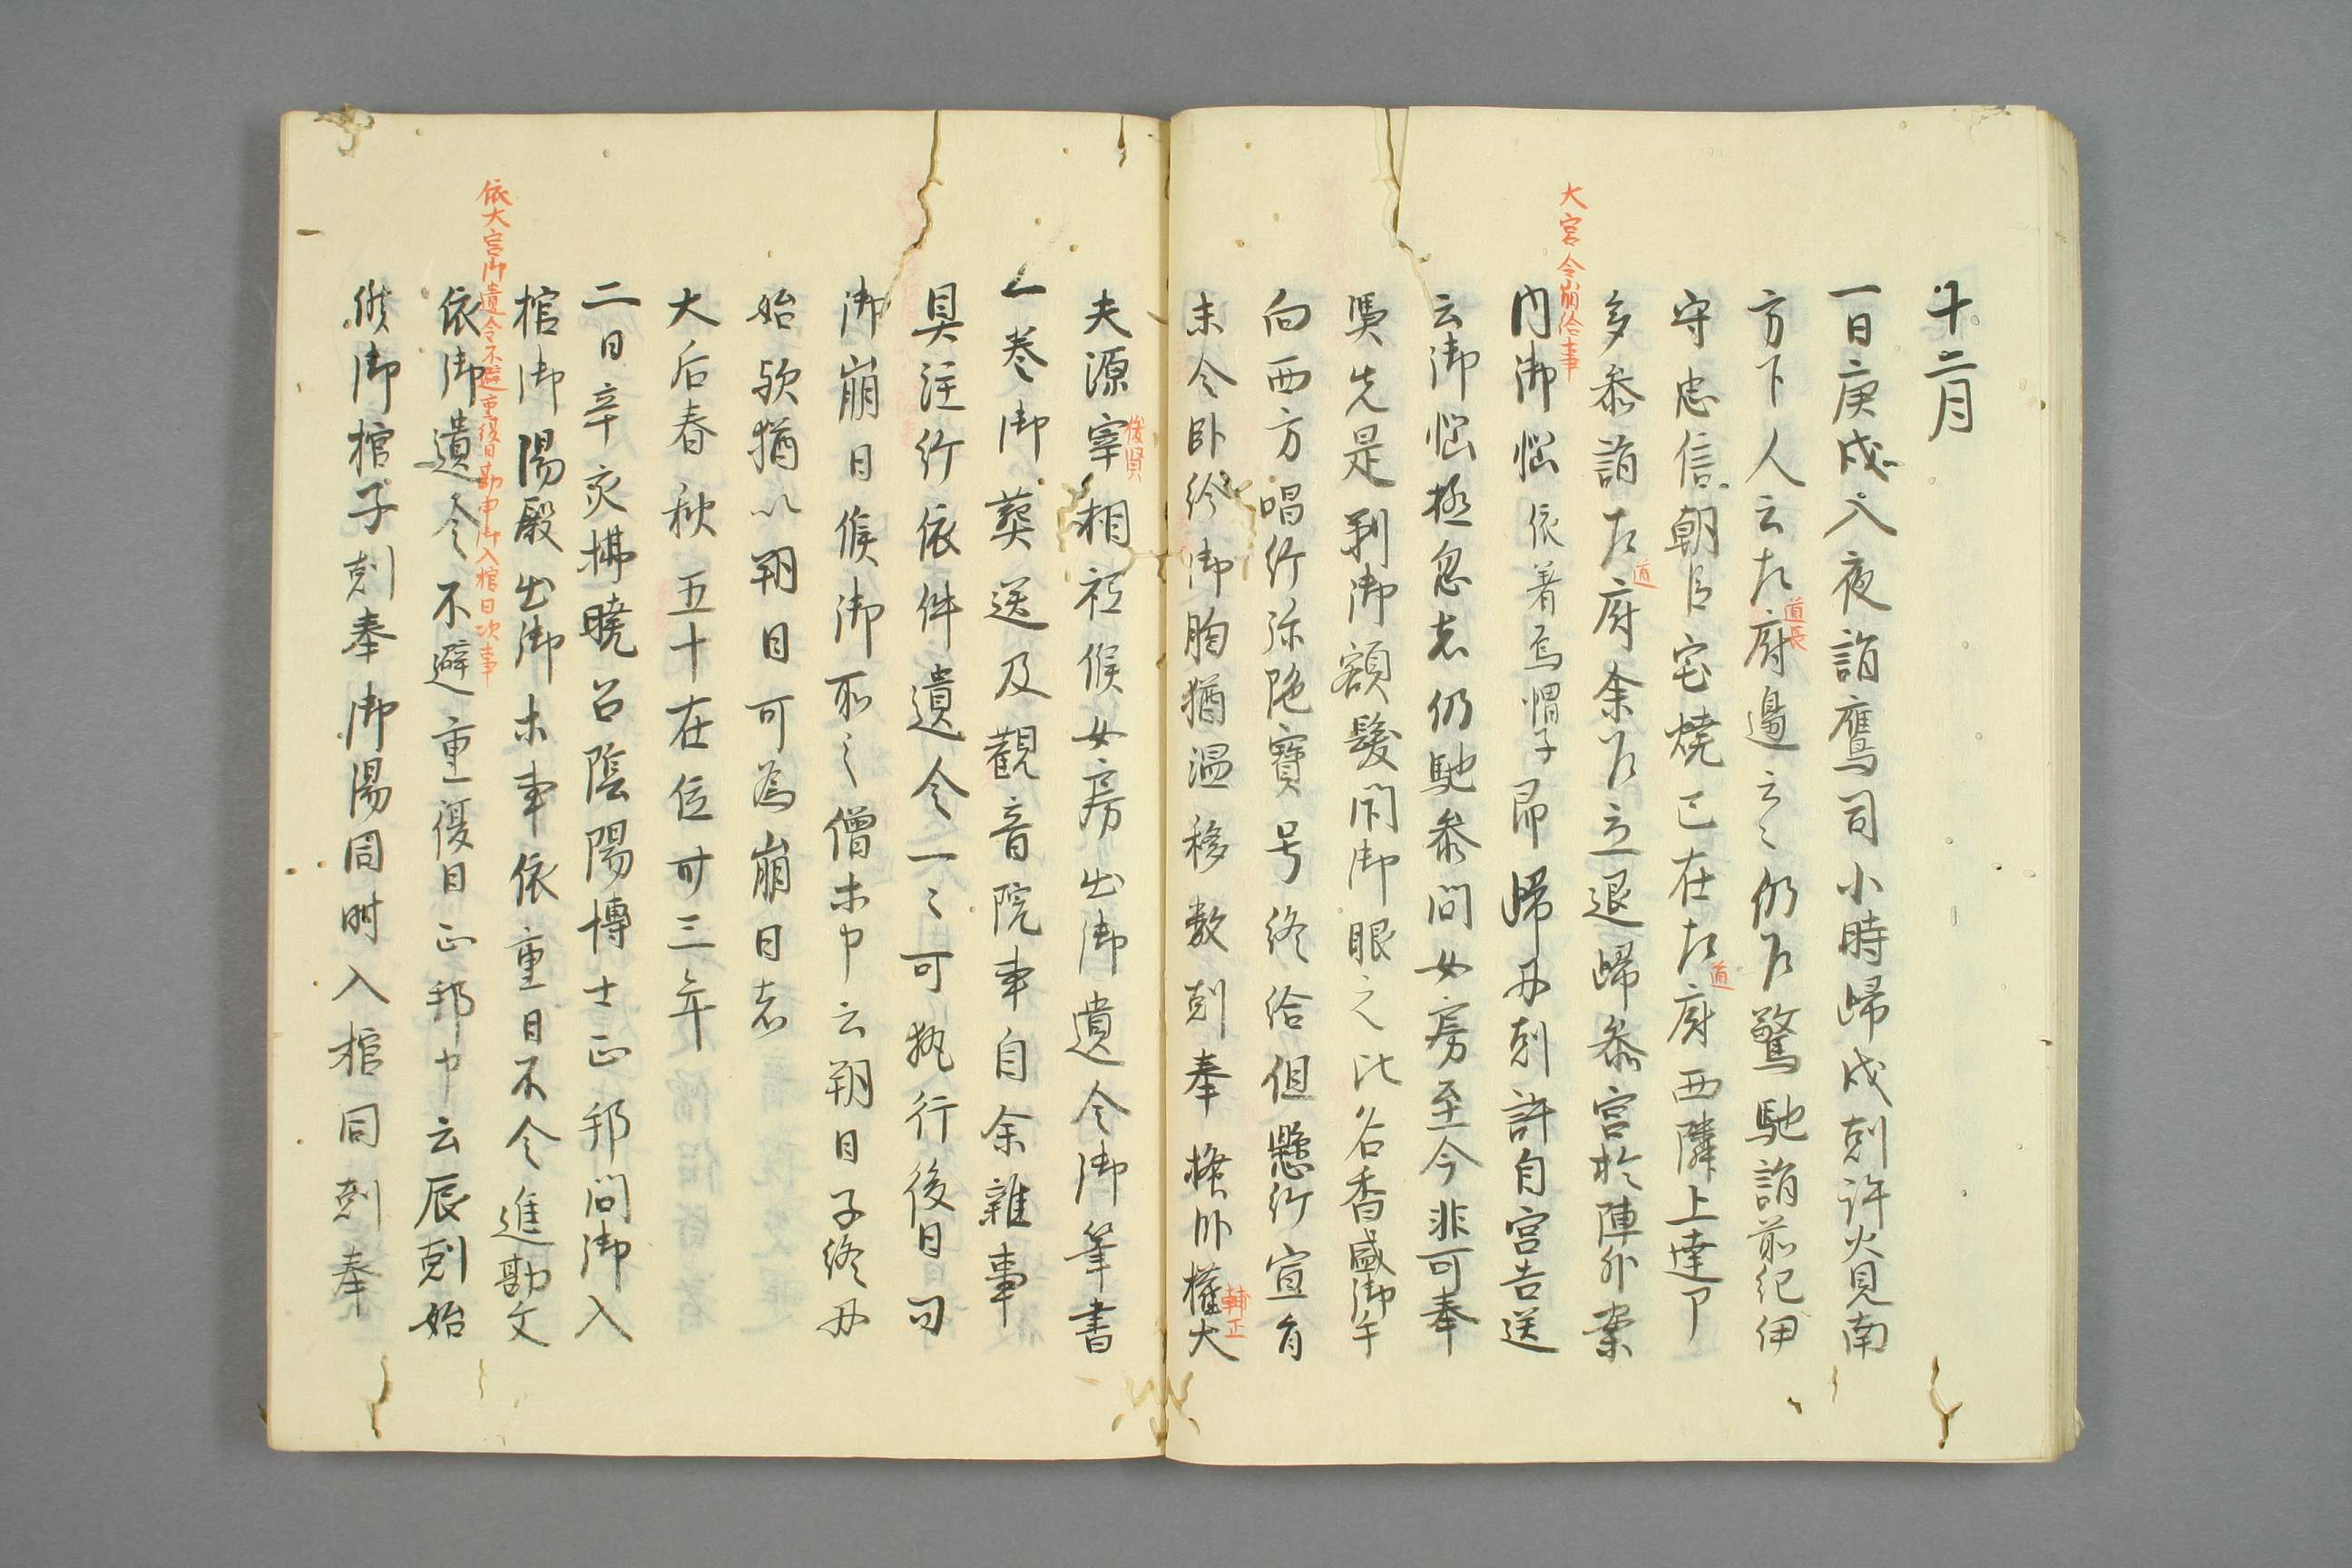 十二月
一日庚戌入夜詣鷹司小時歸戌剋許火見南
方下人云左府邊云〻仍乍驚馳詣前紀伊
道長
守忠信朝臣宅燒已在左府西隣上達了
道
多參詣左府余乍立退歸參宮於陣外案
道
大宮令崩給事
內御惱依著烏帽子即歸丑剋許自宮告送
云御惱極忽者仍馳參問女房至今非可奉
憑先是剃御額髮閇御眼之比名香盛御手
向西方唱行弥陁寶号終給但懸行宣旨
未令臥給御胸猶溫移數剋奉橫臥權大
輔正
夫源宰相祗候女房出御遺令御筆書
俊賢
一卷御葬送及觀音院事自余雜事
具注行依件遺令一〻可執行後日問
御崩日候御所之僧未申云朔日子終丑
始欤猶以朔日可為崩日者
大后春秋五十在位可三年
二日辛亥拂曉召陰陽博士正邦問御入
棺御湯殿出御未事依重日不令進勘文
依大宮御遺令不避重復日勘申御入棺日次事
依御遺令不避重復日正邦申云辰剋始
御棺子剋奉御湯同時入棺同剋奉